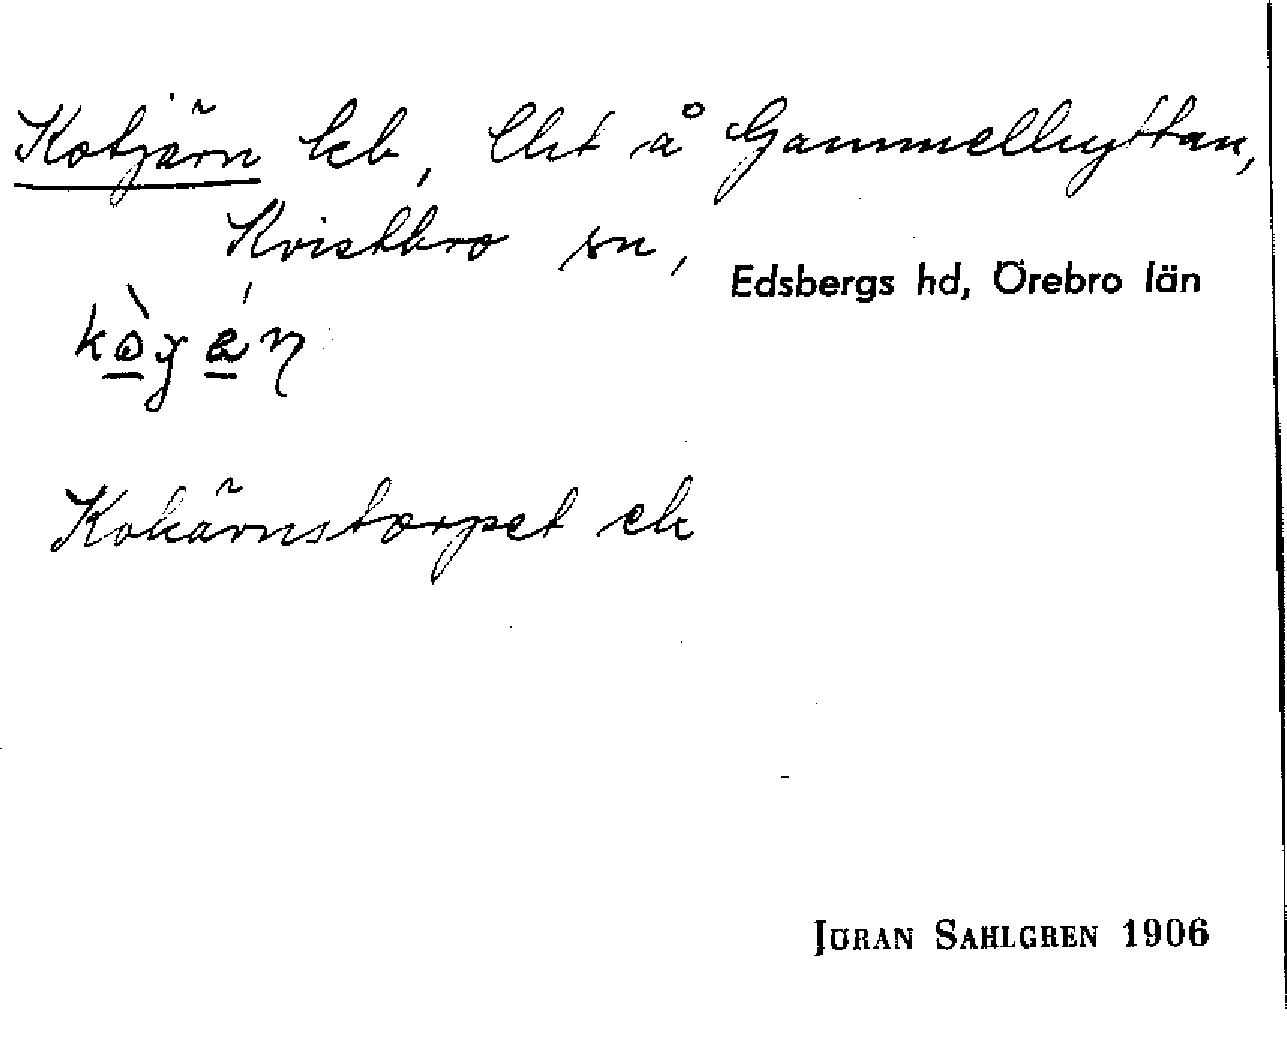 Kotjärn lcb, lht å Gammelhyttan,
Kvistbro sn,
Edsbergs hd, Örebro län
Kokärnstorpet ek
JÖRAN SAHLGREN 1906